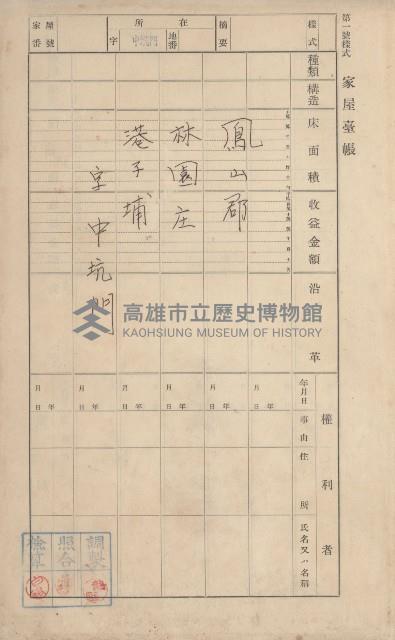 第一號樣式
家屋臺帳
樣式
種類
構造
床面積
收益金額
沿革
年月日
事由
住所
氏名又ハ名稱
權利者
摘要
所在
地番
字
中坑門
家屋番號
鳳山郡
林園庄
港子埔
字中坑門
高雄市立歷史博物館
KAOHSIUNG MUSEUM OF HISTORY
年月日
年月日
年月日
年月日
年月日
年月日
調製
照合
檢算